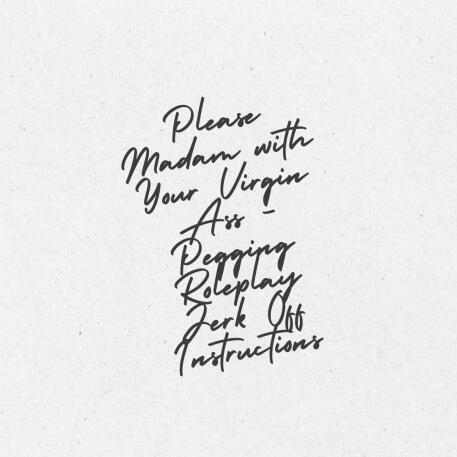 Please
Madam with
Your Virgin
Ass -
Pegging
Roleplay
Jerk Off
Instructions